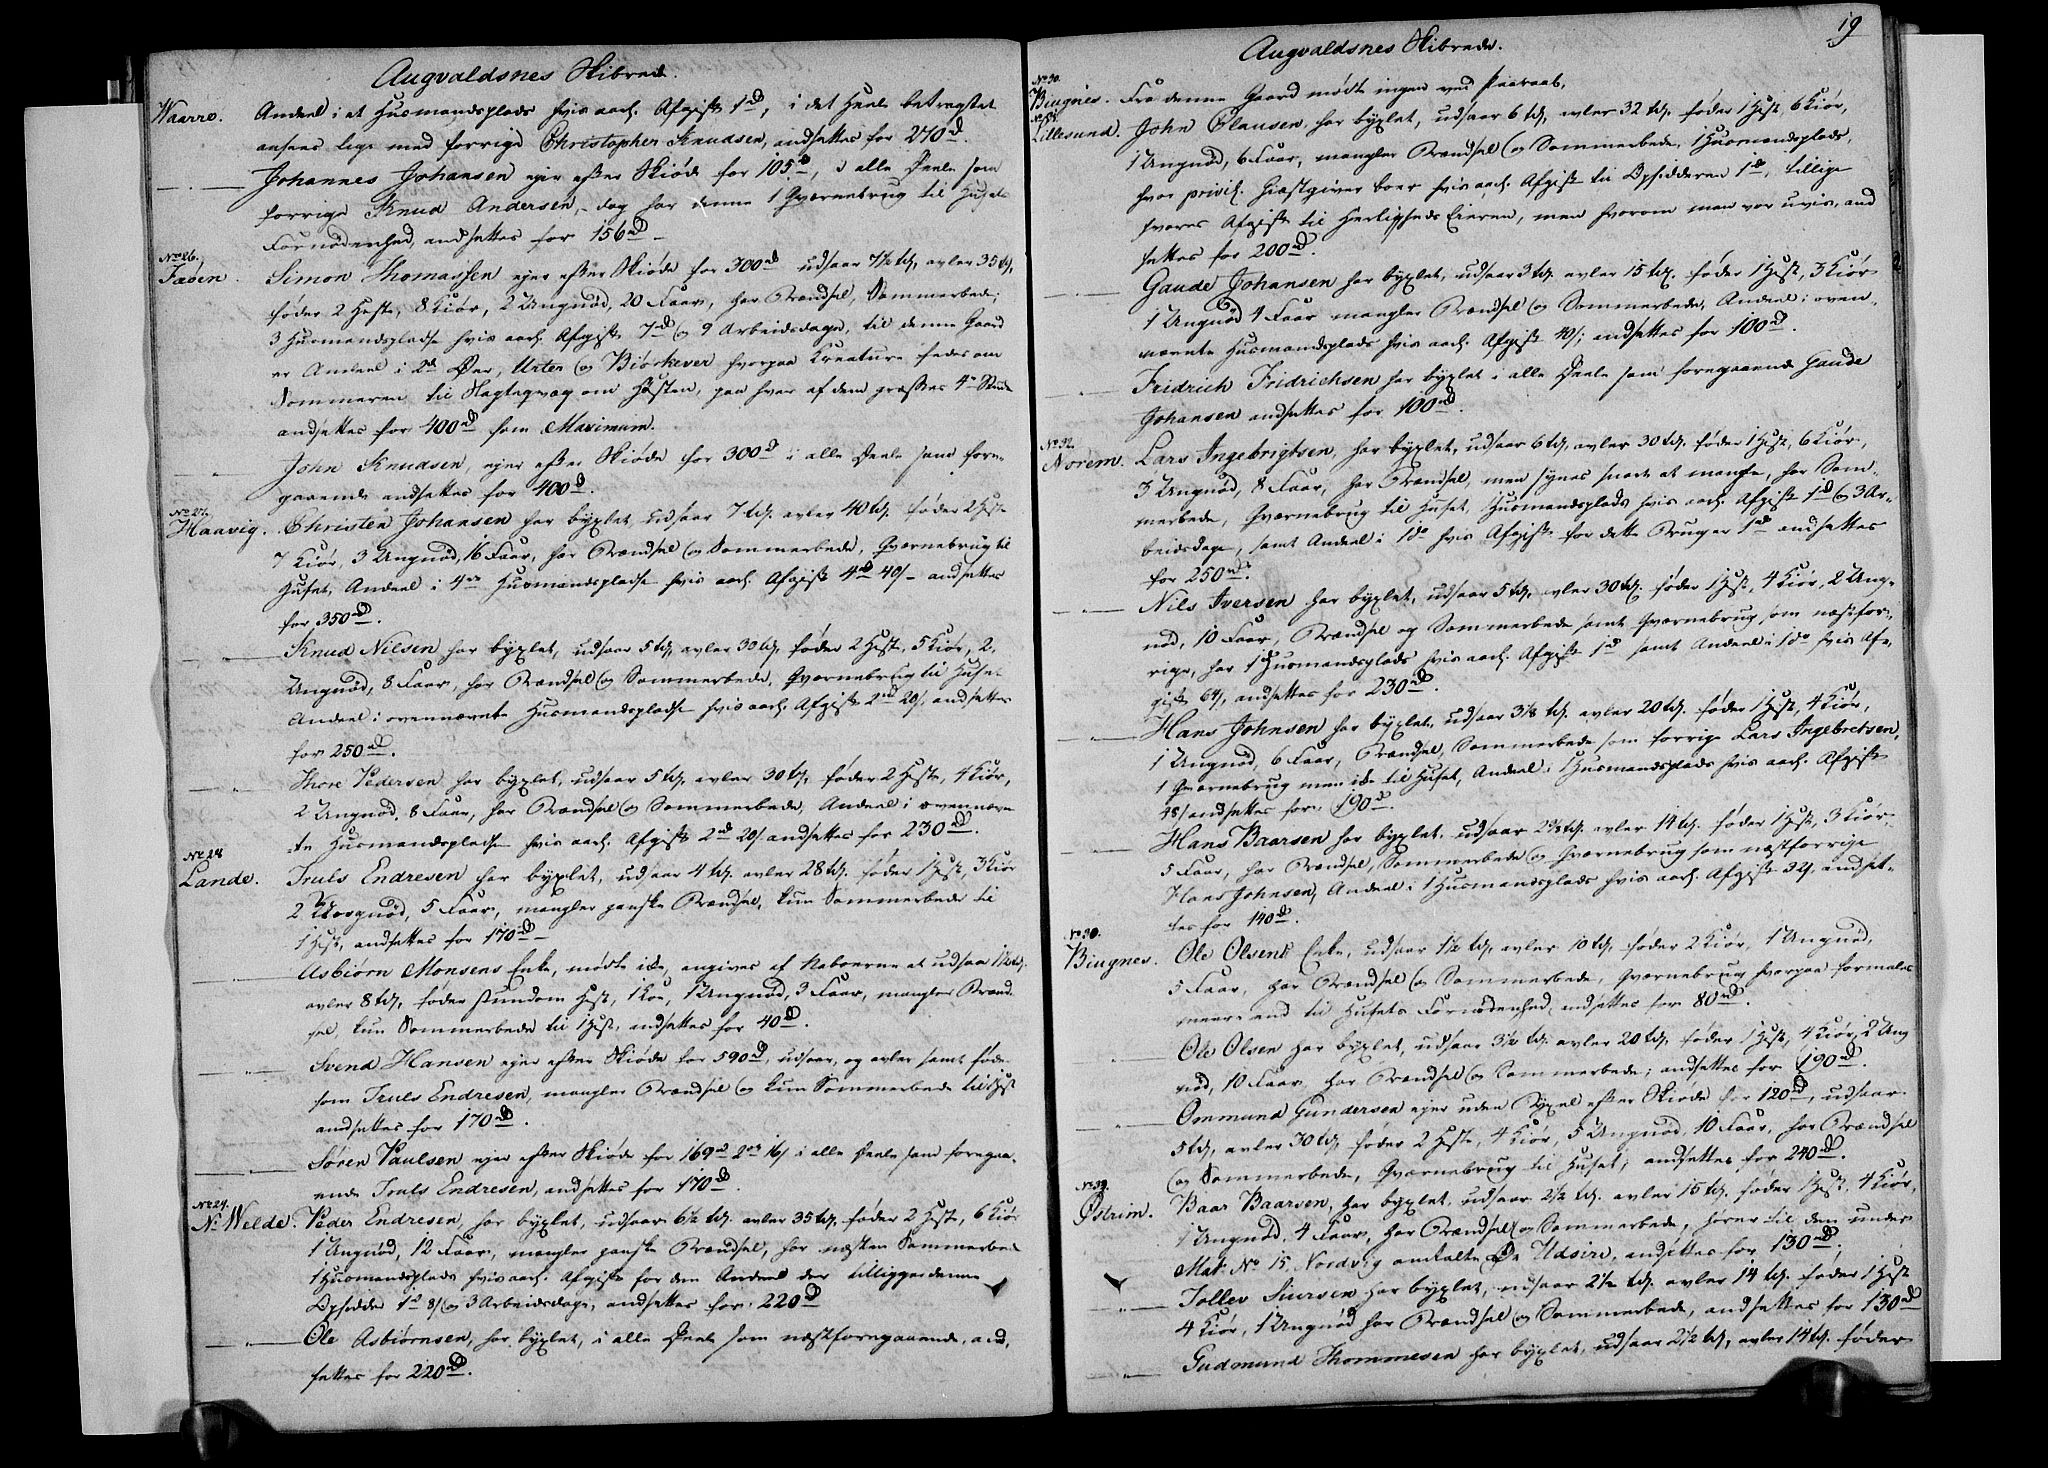 Augvaldsnes Skibrede.
Waarre. Andeel i et Huusmandsplads hvis aarl. Afgift 1 rd, i det Heele betragtet
ansees lige med forrige Christopher Knudsen, andsettes for 270 rd.
Johannes Johansen ejer efter Skiøde for 105 rd, i alle Deele som
forrige Knud Andersen, dog har denne 1 Qværnebrug til Husets
Fornødenhed, andsettes for 156 rd
No 26.
Fæøen. Simon Thomassen ejer efter Skiøde for 300 rd udsaar 7½ td, avler 35 td,
føder 2 Heste, 8 Kiør, 2 Ungnød, 20 Faar, har Brændsel, Sommerbede;
3 Huusmandspladse hvis aarl. Afgift 7 rd og 9 Arbeidsdage, til denne Gaard
er Andeel i 2de Øer, Urter og Biørkever hvorpaa Kreature fedes om
Sommeren til Slagteqvæg om Høsten, paa hver af dem græsses 4re Stude
andsettes for 400 rd som Maximum.
John Knudsen, ejer efter Skiøde for 300 rd i alle Deele som fore-
gaaende andsettes for 400 rd.
No 27.
Haavig. Christen Johansen har byxlet, udsaar 7 td. avler 40 td. føder 2 Heste
7 Kiør, 3 Ungnød, 16 Faar, har Brændsel og Sommerbede, Qværnebrug til
Huset, Andeel i 4re Huusmandspladse hvis aarl. Afgift 4 rd 40 s andsettes
for 350 rd.
Knud Nilsen har byxlet, udsaar 5 td, avler 30 td, føder 2 Heste, 5 Kiør, 2
Ungnød, 8 Faar, har Brændsel og Sommerbede, Qværnebrug til Huset
Andeel i ovennævnte Huusmandspladse hvis aarl. Afgift 2 rd 20 s, andsettes
for 250 rd.
Thore Pedersen har byxlet, udsaar 5 td, avler 30 td, føder 2 Heste, 4 Kiør,
2 Ungnød, 8 Faar, har Brændsel og Sommerbede, Andeel i ovennævn-
te Huusmandspladse hvis aarl. Afgift 2 rd 20 s andsettes for 230 rd.
No 28
Lande. Truls Endresen har byxlet, udsaar 4 td. avler 28 td. føder 1 Hest, 3 Kiør
2 Ungnød, 5 Faar, mangler ganske Brændsel, kun Sommerbede til
1 Hest, andsettes for 170 rd
Asbiørn Monsens Enke, mødte icke, angives af Naboerne at udsaae 1½ td.
avler 8 td, føder stundom Hest, 1 Koe, 1 Ungnød, 3 Faar, mangler Brænd-
sel, kun Sommerbede til 1 Hest, andsettes for 40 rd.
Svend Hansen ejer efter Skiøde for 590 rd, udsaar, og avler samt føder
som Truls Endresen, mangler Brændsel og kun Sommerbede til 1 Hest
andsettes for 170 rd.
Søren Paulsen ejer efter Skiøde for 169 rd 2 ort 16 s i alle Deele som foregaa-
ende Truls Endresen, andsettes for 170 rd.
No 29.
N: Welde. Peder Endresen, har byxlet, udsaar 6½ td. avler 35 td, føder 2 Heste, 6 Kiør
1 Ungnød, 12 Faar, mangler ganske Brændsel, har næsten Sommerbede
1 Huusmandsplads hvis aarl. Afgift for den Andeel der tilligger denne
Opsidder 1 rd 8 s og 3 Arbeidsdage, andsettes for 220 rd
Ole Asbiørnsen, har byxlet, i alle Deele som næstforegaaende, and,
settes for 220 rd.
19
Augvaldsnes Skibrede.
No 30.
Biugnes. Fra denne Gaard mødte ingen ved Paaraab.
No 31.
Lillesund. John Clausen, har byxlet, udsaar 6 td, avler 32 td, føder 1 Hest, 6 Kiør,
1 Ungnød, 6 Faar, mangler Brændsel og Sommerbede, 1 Huusmandsplads,
hvor privil. Giæstgiver boer hvis aarl. Afgift til Opsidderen 1 rd, tillige
svares Afgift til Herligheds Eieren, men hvorom man var uvis, and
settes for 200 rd.
Gaude Johansen har byxlet, udsaar 3 td. avler 15 td. føder 1 Hest, 3 Kiør
1 Ungnød 4 Faar mangler Brændsel og Sommerbede, Andeel i oven-
nævnte Huusmandsplads hvis aarl. Afgift 40 s; andsettes for 100 rd.
Fridrich Fridrichsen har byxlet i alle Deele som foregaaende Gaude
Johansen andsettes for 100 rd.
No 32.
Norem. Lars Ingebrigtsen, har byxlet, udsaar 6 td, avler 30 td. føder 1 Hest, 6 Kiør,
3 Ungnød, 8 Faar, har Brændsel, men synes snart at mangle, har Som-
merbede, Qværnebrug til Huset, Huusmandsplads hvis aarl. Afgift 1 rd og 3 Ar-
beidsdage, samt Andeel i 1 do hvis Afgift for dette Brug er 1 rd andsettes
for 250 rd.
Nils Iversen har byxlet, udsaar 5 td, avler 30 td. føder 1 Hest, 4 Kiør, 2 Ung-
nød, 10 Faar, Brændsel og Sommerbede samt Qværnebrug som næstfor-
rige, har 1 Huusmandsplads hvis aarl. Afgift 1 rd samt Andeel i 1 do hvis Af-
gift 64 s, andsettes for 230 rd.
Hans Johnsen har byxlet, udsaar 3⅛ td. avler 20 td. føder 1 Hest, 4 Kiør,
1 Ungnød, 6 Faar, Brændsel, Sommerbede som forrige Lars Ingebretsen,
1 Qværnebrug men icke til Huset, Andeel i 1 Huusmandsplads hvis aarl. Afgift
48 s andsettes for 190 rd.
Hans Baarsen har byxlet, udsaar 2⅜ td. avler 14 td. føder 1 Hest, 3 Kiør,
5 Faar, har Brændsel, Sommerbede og Qværnebrug som næstforrige
Hans Johnsen, Andeel i 1 Huusmandsplads hvis aarl. Afgift 32 s, andset-
tes for 140 rd.
No 30.
Biugnes. Ole Olsens Enke, udsaar 1½ td, avler 10 td, føder 2 Kiør, 1 Ungnød,
5 Faar, har Brændsel og Sommerbede, Qværnebrug hvorpaa formales
meere end til Husets Fornødenhed, andsettes for 80 rd.
Ole Olsen har byxlet, udsaar 3½ td. avler 20 td, føder 1 Hest, 4 Kiør, 2 Ung
nød, 10 Faar har Brændsel og Sommerbede; andsettes for 190 rd.
Ommund Gundersen ejer uden Byxel efter Skiøde for 120 rd, udsaar
5 td, avler 30 td, føder 2 Heste, 4 Kiør, 5 Ungnød, 10 Faar, har Brændsel
og Sommerbede, Qværnebrug til Huset; andsettes for 240 rd.
No 33.
Østrim. Baar Baarsen, har byxlet, udsaar 2½ td. avler 15 td, føder 1 Hest, 4 Kiør,
1 Ungnød, 4 Faar, har Brændsel og Sommerbede, hører til den under
Mat: No 15 Nordvig omtalte Øe Udsire, andsettes for 130 rd;
Tollev Siursen har byxlet, udsaar 2½ td. avler 14 td. føder 1 Hest
4 Kiør, 1 Ungnød har Brændsel og Sommerbede, andsettes for 130 rd
Gudmund Thommesen har byxlet, udsaar 2½ td, avler 14 td. føder